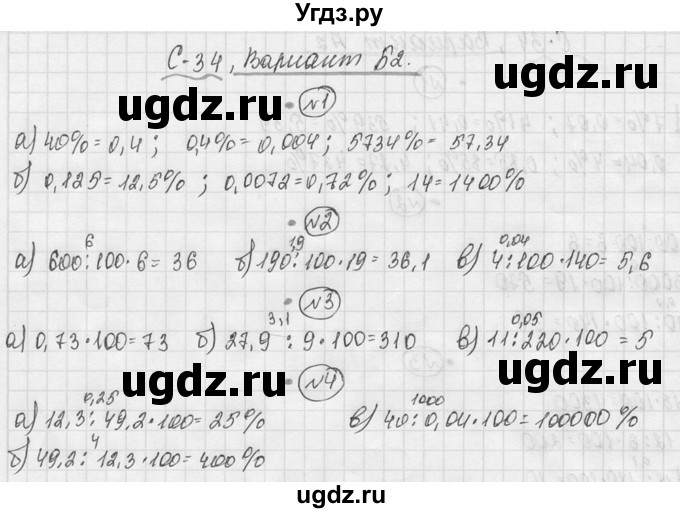 Угдз.ру
С-34, Вариант Б2.
ugdz.ru ugdz.ru
№1
а) 40% = 0,4 ; 0,4% = 0,004 ; 5734% = 57,34
б) 0,125 = 12,5% ; 0,0072 = 0,72% ; 14 = 1400%
ugdz.ru ugdz.ru
№2
6 1,9 0,04
а) 600:100·6 = 36 б) 190:100·19 = 36,1 в) 4:100·140 = 5,6
ugdz.ru ugdz.ru
№3
3,1 0,05
а) 0,73·100 = 73 б) 27,9 : 9·100 = 310 в) 11:220·100 = 5
ugdz.ru ugdz.ru
№4
0,25 1000
а) 12,3:49,2·100 = 25% в) 40:0,04·100 = 100000%
4
б) 49,2:12,3·100 = 400%
ugdz.ru ugdz.ru
ugdz.ru